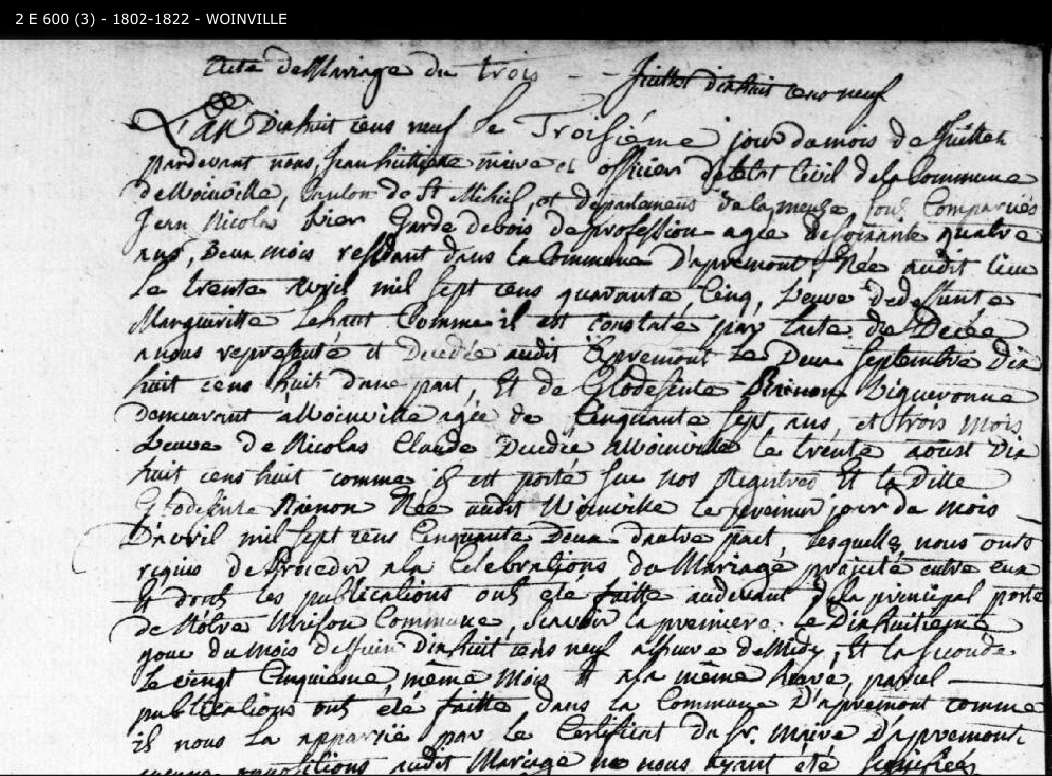 2 E 600 (3) - 1802-1822 - WOINVILLE
Acte de Mariage du trois - - Juillet dixhuit cens neuf
L'an Dixhuit cens neuf le Troisiéme jour du mois de Juillet
pardevant nous, Jean maire et officier de l'etat Civil de la Commune
de Woinville, Canton de St Mihiel, et département de la meuse sont Comparués
Jean Nicolas Vier Garde de bois de profession agée de soixante quatre
ans, Deux mois residant dans la Commune D'apremont, Née audit lieu
le trente Avril mil sept cens quarante Cinq, veuve de defunte
Margueritte Lehaut Comme il est constaté par l'acte de Décée
a nous representé et Decedée audit Apremont le Deux Septembre Dix
huit cens huit dune part, Et de Glodesinte Vigneronne
demeurant à Woinville agée de Cinquante Sept ans, et trois mois
veuve de Nicolas Claude Decedée a Woinville le trente aoust Dix
huit cens huit comme il est porté sur nos Registres Et la Ditte
Glodesinte Née audit Woinville le premier jour du mois
D'avril mil sept cens Cinquante Deux dautre part, lesquelles nous onts
requis de Proceder a la Celebrations du Mariage projecté entre eux
et dont les publications ont été faitte audevant de la principal porte
de Nôtre Maison Commune, Scavoir la premiere le Dixhuitieme
jour du mois de Juin Dixhuit cens neuf a heure de Midy, Et la seconde
le vingt Cinquieme même Mois et a la même heure, pareil
publications ont été faitte dans la Commune D'apremont comme
il nous la apparüe par le Certificat du Sr. Maire D'apremont,
oppositions audit Mariage ne nous ayant été